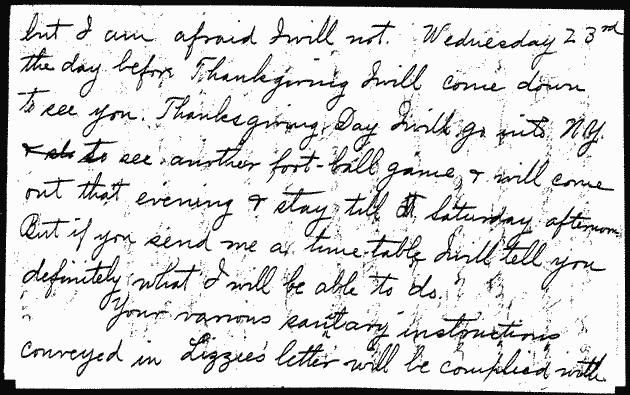 but I am afraid I will not. Wednesday 23rd
the day before Thanksgiving I will come down
to see you. Thanksgiving Day I will go into N.Y.
to see another foot-ball game, & will come
out that evening & stay till Saturday afternoon.
But if you send me a time-table I will tell you
definitely what I will be able to do.
Your various sanitary instructions
conveyed in Lizzie's letter will be complied with